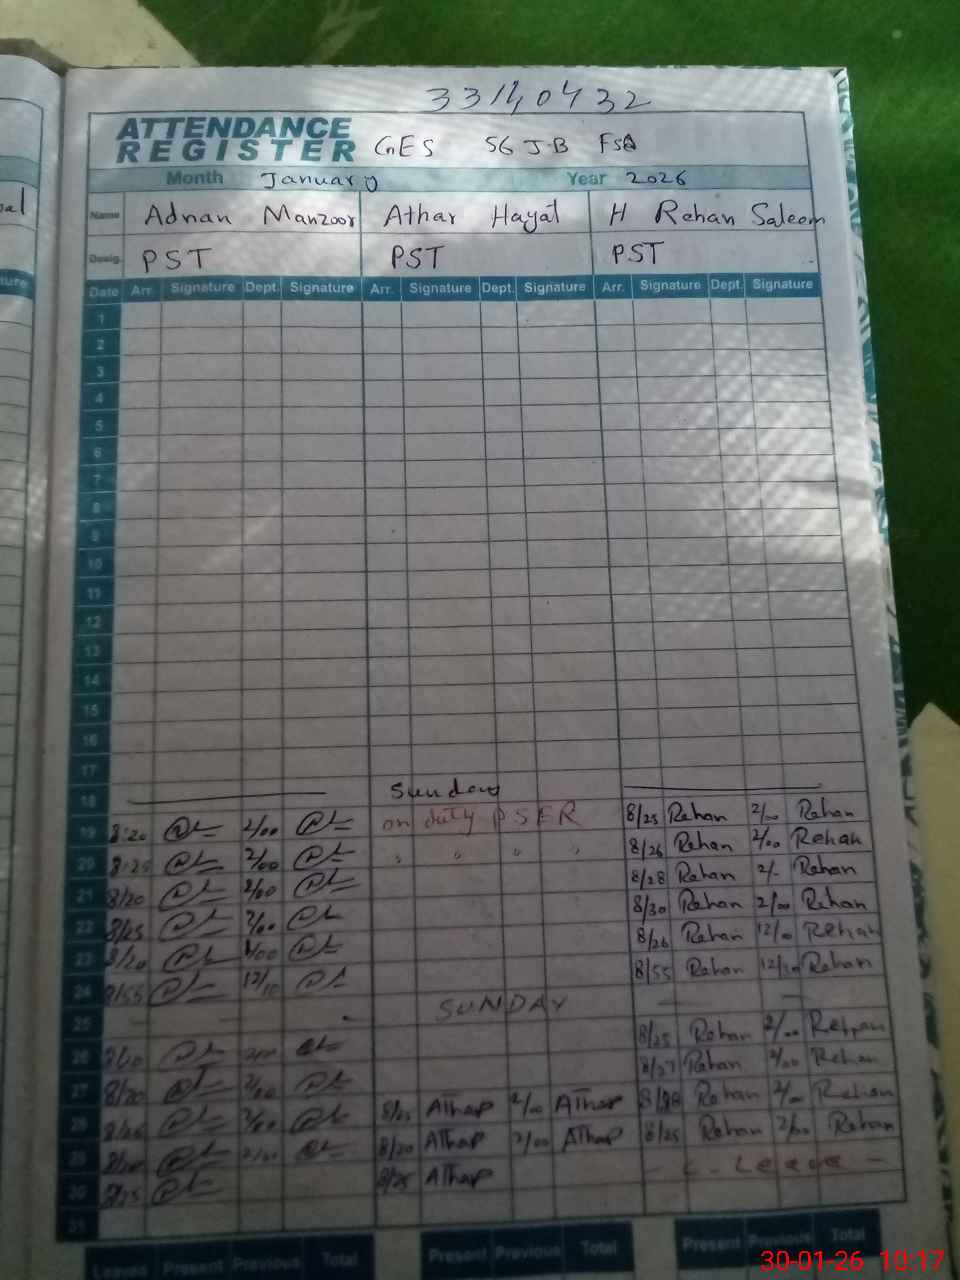 33140432
ATTENDANCE
REGISTER GES 56 J.B FSD
Month January Year 2026
Name Adnan Manzoor Athar Hayat H Rehan Saleem
Desig. PST PST PST
Date Arr. Signature Dept. Signature Arr. Signature Dept. Signature Arr. Signature Dept. Signature
1
2
3
4
5
6
7
8
9
10
11
12
13
14
15
16
17
18 Sunday
19 8:20 2/00 on duty PSER 8/25 Rehan 2/00 Rehan
20 8:25 2/00 " " " " 8/26 Rehan 2/00 Rehan
21 8/20 2/00 8/28 Rehan 2/- Rehan
22 8/25 2/00 8/30 Rehan 2/00 Rehan
23 8/20 8/26 Rehan 12/00 Rehan
24 8/55 12/10 8/55 Rehan Rehan
25 SUNDAY
26 8/25 Rehan 2/00 Rehan
27 8/20 2/00 8/27 Rehan 2/00 Rehan
28 2/00 8/25 Athar 2/00 Athar Rehan 2/00 Rehan
29 8/20 Athar 2/00 Athar 8/25 Rehan 2/00 Rehan
30 8/25 8/25 Athar - C. Leave -
31
Leaves Present Previous Total Present Previous Total Present Previous Total
30-01-26 10:17